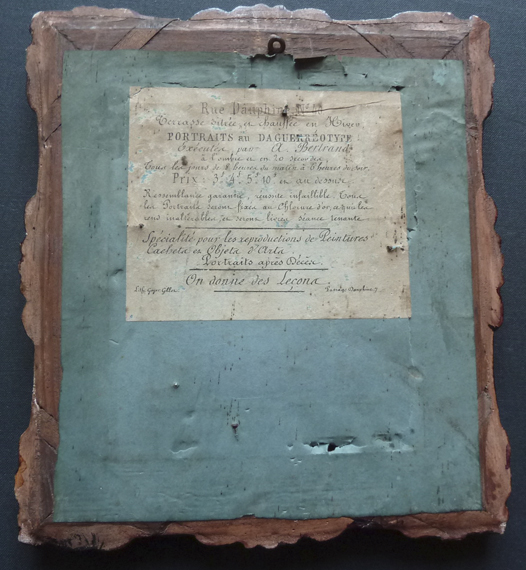 Rue Dauphine
Terrasse vitrée et chauffée en Hiver
PORTRAITS au DAGUERRÉOTYPE
Exécutés par A. Bertrand
à l'ombre et en 20 secondes
Tous les jours de 8 heures du matin à heures du soir.
Prix 3f 4f 5f 10f et au dessus
Ressemblance garantie, réussite infaillible Tous
les Portraits seront fixés au Chlorure d'or, ce qui les
rend inaltérables, et seront livrés séance tenante
Spécialité pour les reproductions de Peintures
Cachets et Objets d'Arts
Portraits après Décès
On donne des Leçons
Dauphine